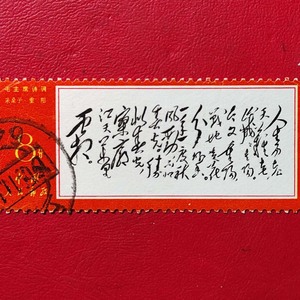 毛主席诗词
采桑子·重阳
8分
人生易老
天难老
岁岁重阳
今又重阳
战地黄花
分外香
一年一度秋
风劲不似
春光胜
似春光
寥廓
江天万里
霜